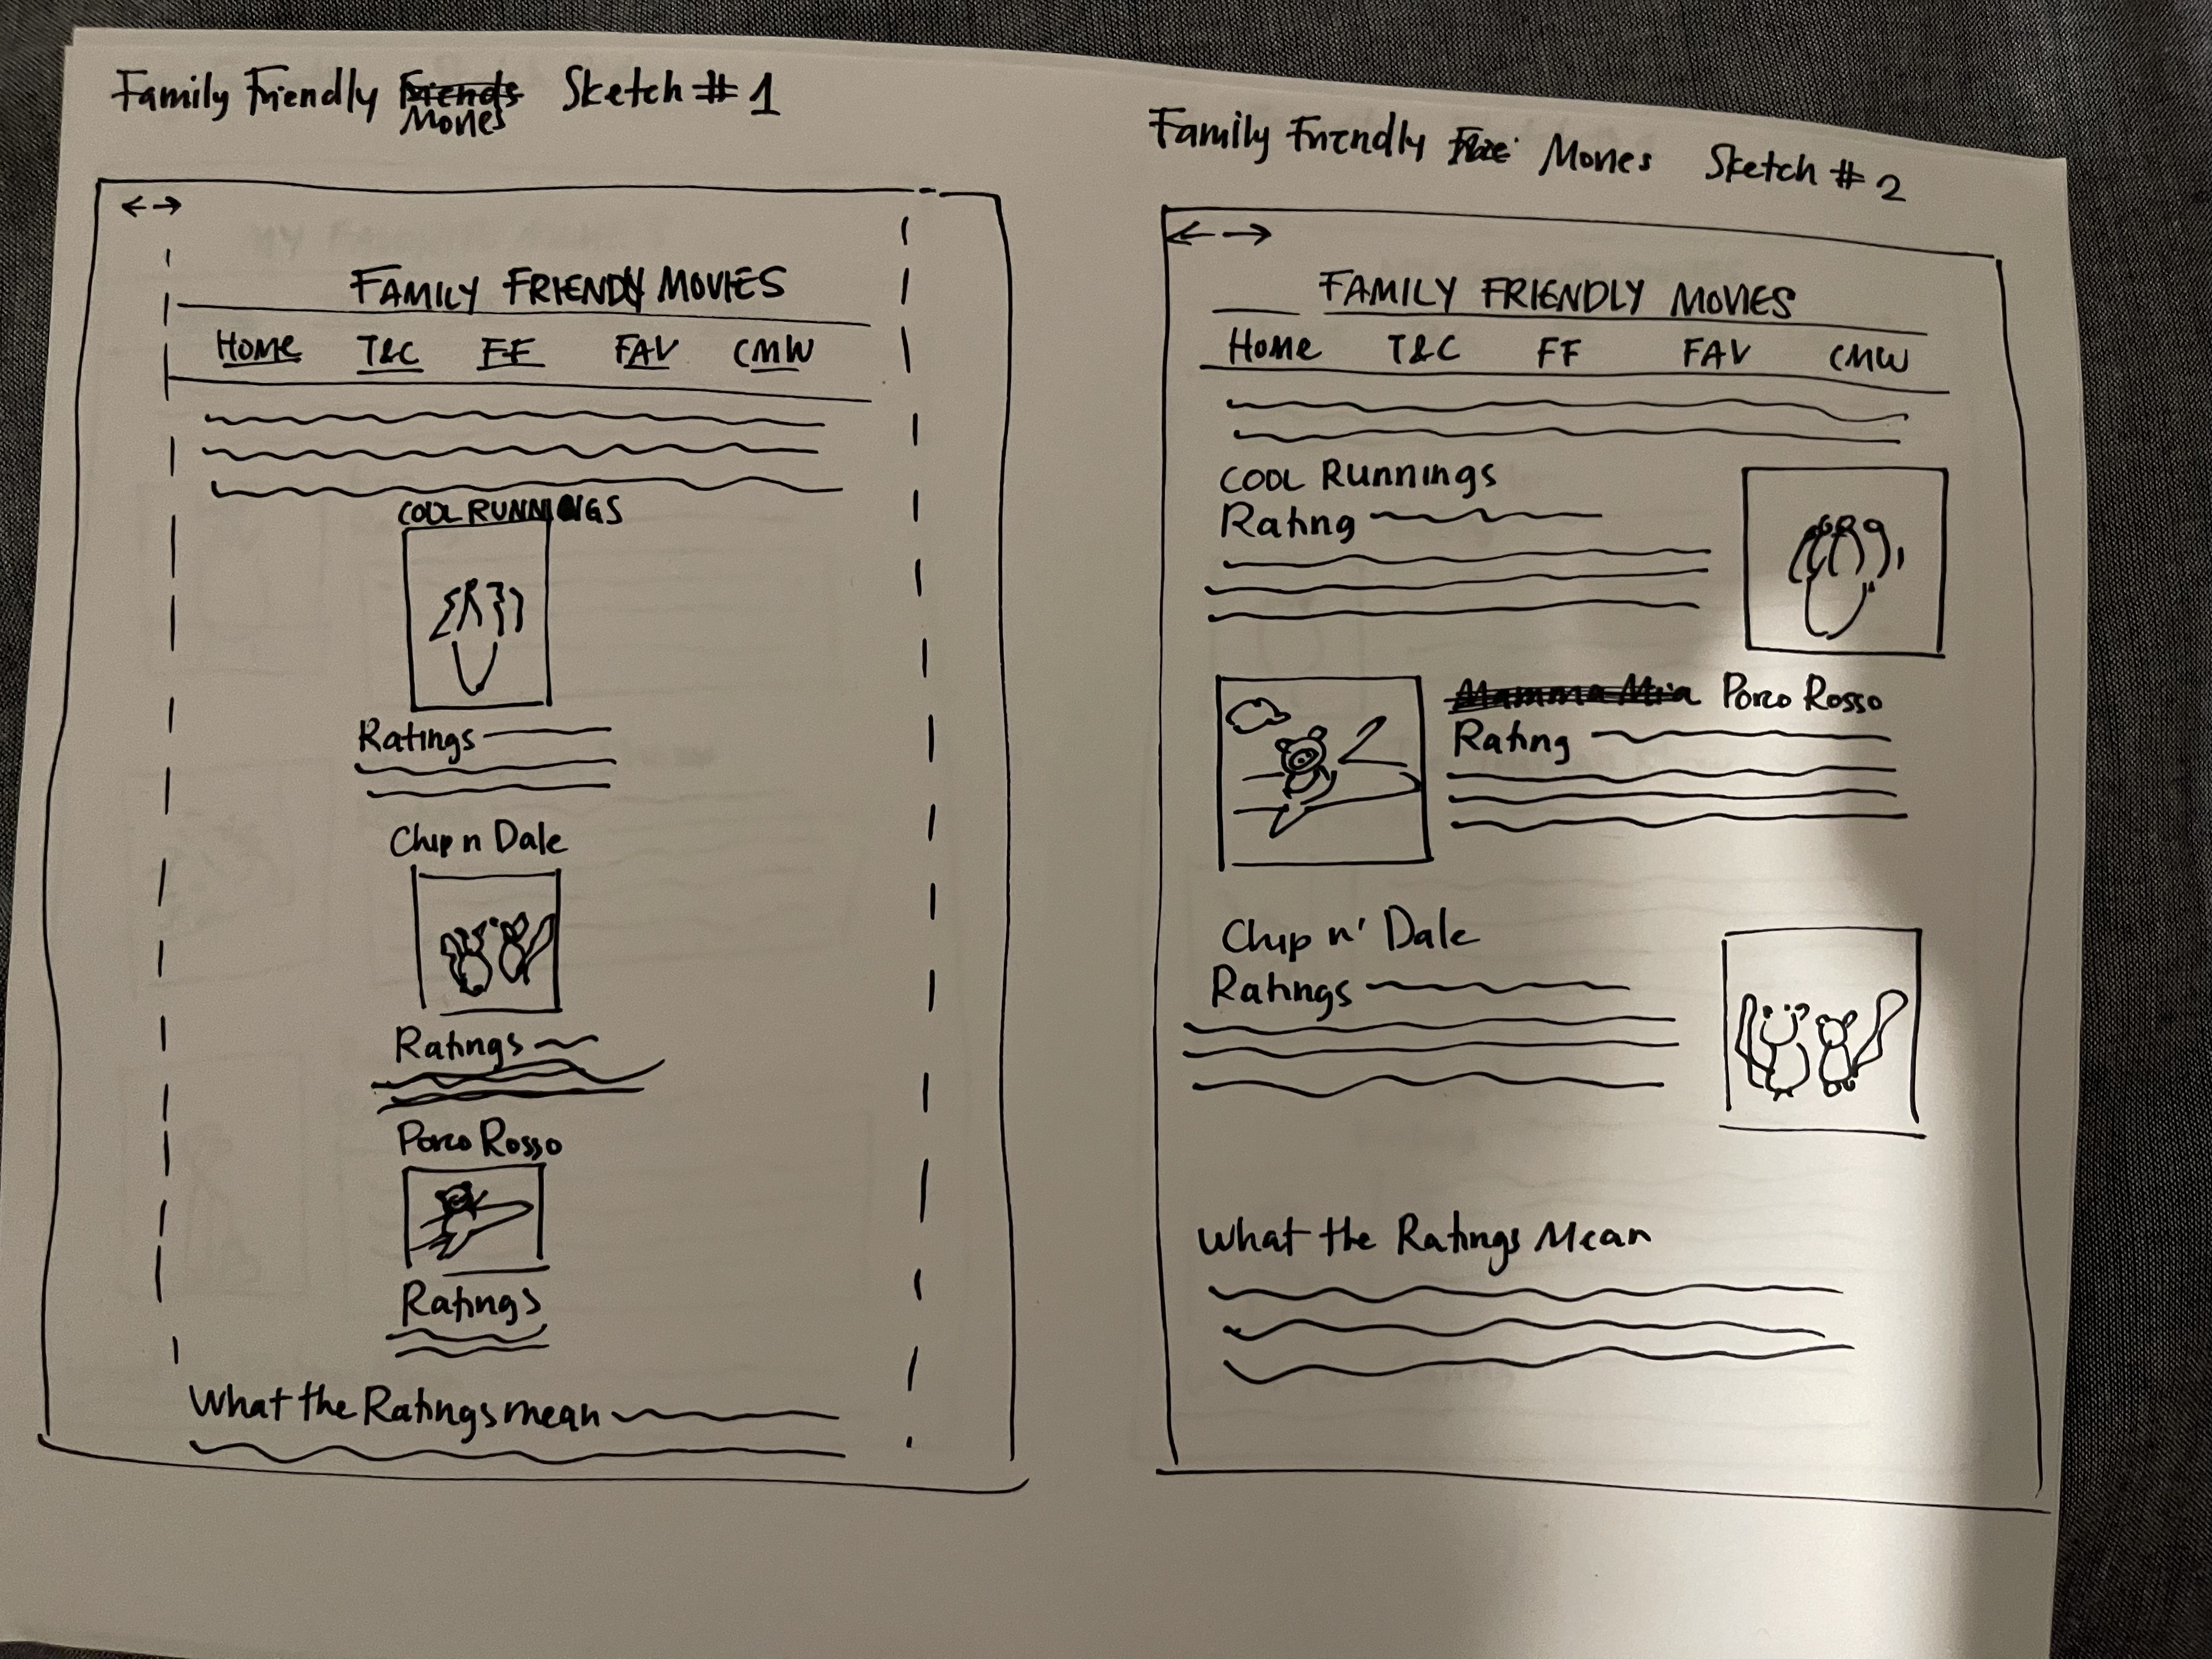 Family Friendly Friends Sketch # 1
Movies
FAMILY FRIENDY MOVIES
Home T&C FF FAV CMW
COOL RUNNINGS
Ratings
Chip n Dale
Ratings
Porco Rosso
Ratings
What the Ratings mean
Family Friendly Movies Sketch # 2
FAMILY FRIENDLY MOVIES
Home T&C FF FAV CMW
COOL Runnings
Rating
Mamma Mia Porco Rosso
Rating
Chip n' Dale
Ratings
What the Ratings Mean